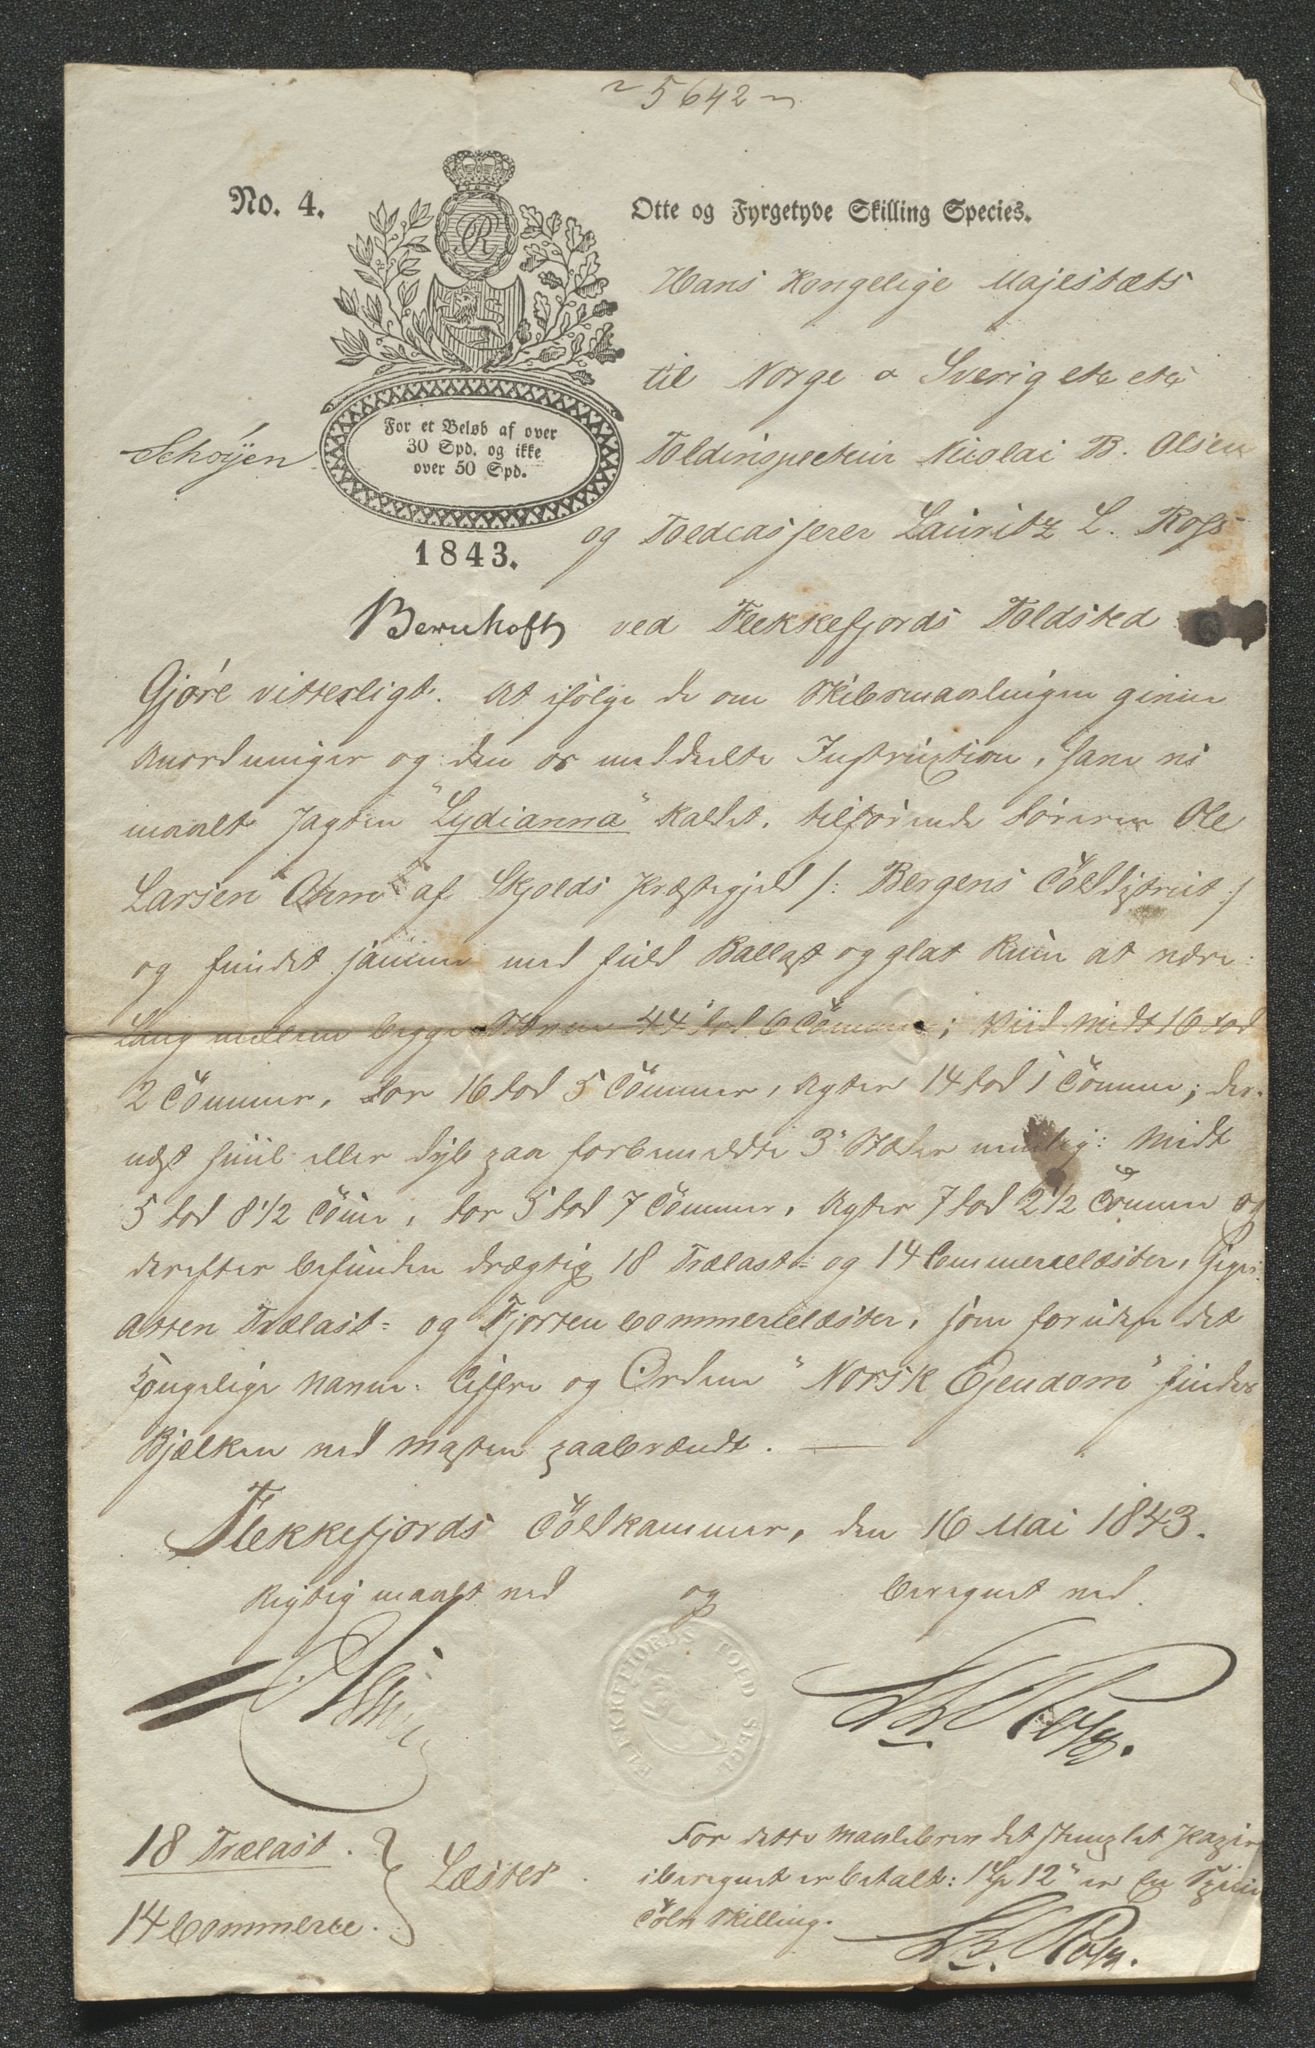 ~ 5642 ~
No. 4.
Otte og Fyrgetyve Skilling Species.
For et Beløb af over
30 Spd. og ikke
over 50 Spd.
1843.
Schøyen
Bernhoft
Hans Kongelige Majestæts
til Norge & Sverig etc etc
Toldinspecteur Nicolai B. Olsen
og Toldcasserer Lauritz L. Ross
ved Flekkefjords Toldsted
Gjøre vitterligt: At ifølge de om Skibsmaalingen givne
Anordninger og den os meddeelte Instruction, have vi
maalt Jagten "Lydianna" kaldet, tilhørende Føreren Ole
Larsen af Skjolds Præstegjeld /: Bergens Tolddistrict :/
og fundet samme med fuld Ballast og glat Rum at være:
Lang mellem begge Stævne 44 Fod 6 Tommer; Viid midt 16 Fod
2 Tommer, For 16 Fod 5 Tommer, Agter 14 Fod 1 Tomme; der-
næst huul eller dyb paa forbemeldte 3 Stæder nemlig: Midt
5 Fod 8 1/2 Tomme, For 5 Fod 7 Tommer, Agter 7 Fod 2 1/2 Tomme og
derefter befunden drægtig 18 Trælast- og 14 Commercelæster, siger:
Atten Trælast- og Fjorten Commercelæster, som foruden det
Kongelige Navne-Ciffre og Ordene "Norsk Ejendom" findes
Bjælken ved Masten paabrændt. —
Flekkefjords Toldkammer, den 16 Mai 1843.
Rigtig maalt ved og beregnet ved
Olsen
L L Ross.
FLEKKEFJORDS TOLD SEGL
18 Trælast.
14 Commerce.
Læster.
For dette Maalebrev det stemplet Papir
iberegnet er betalt: 1 Sp 12 s er En Specie
Tolv Skilling.
L L Ross.